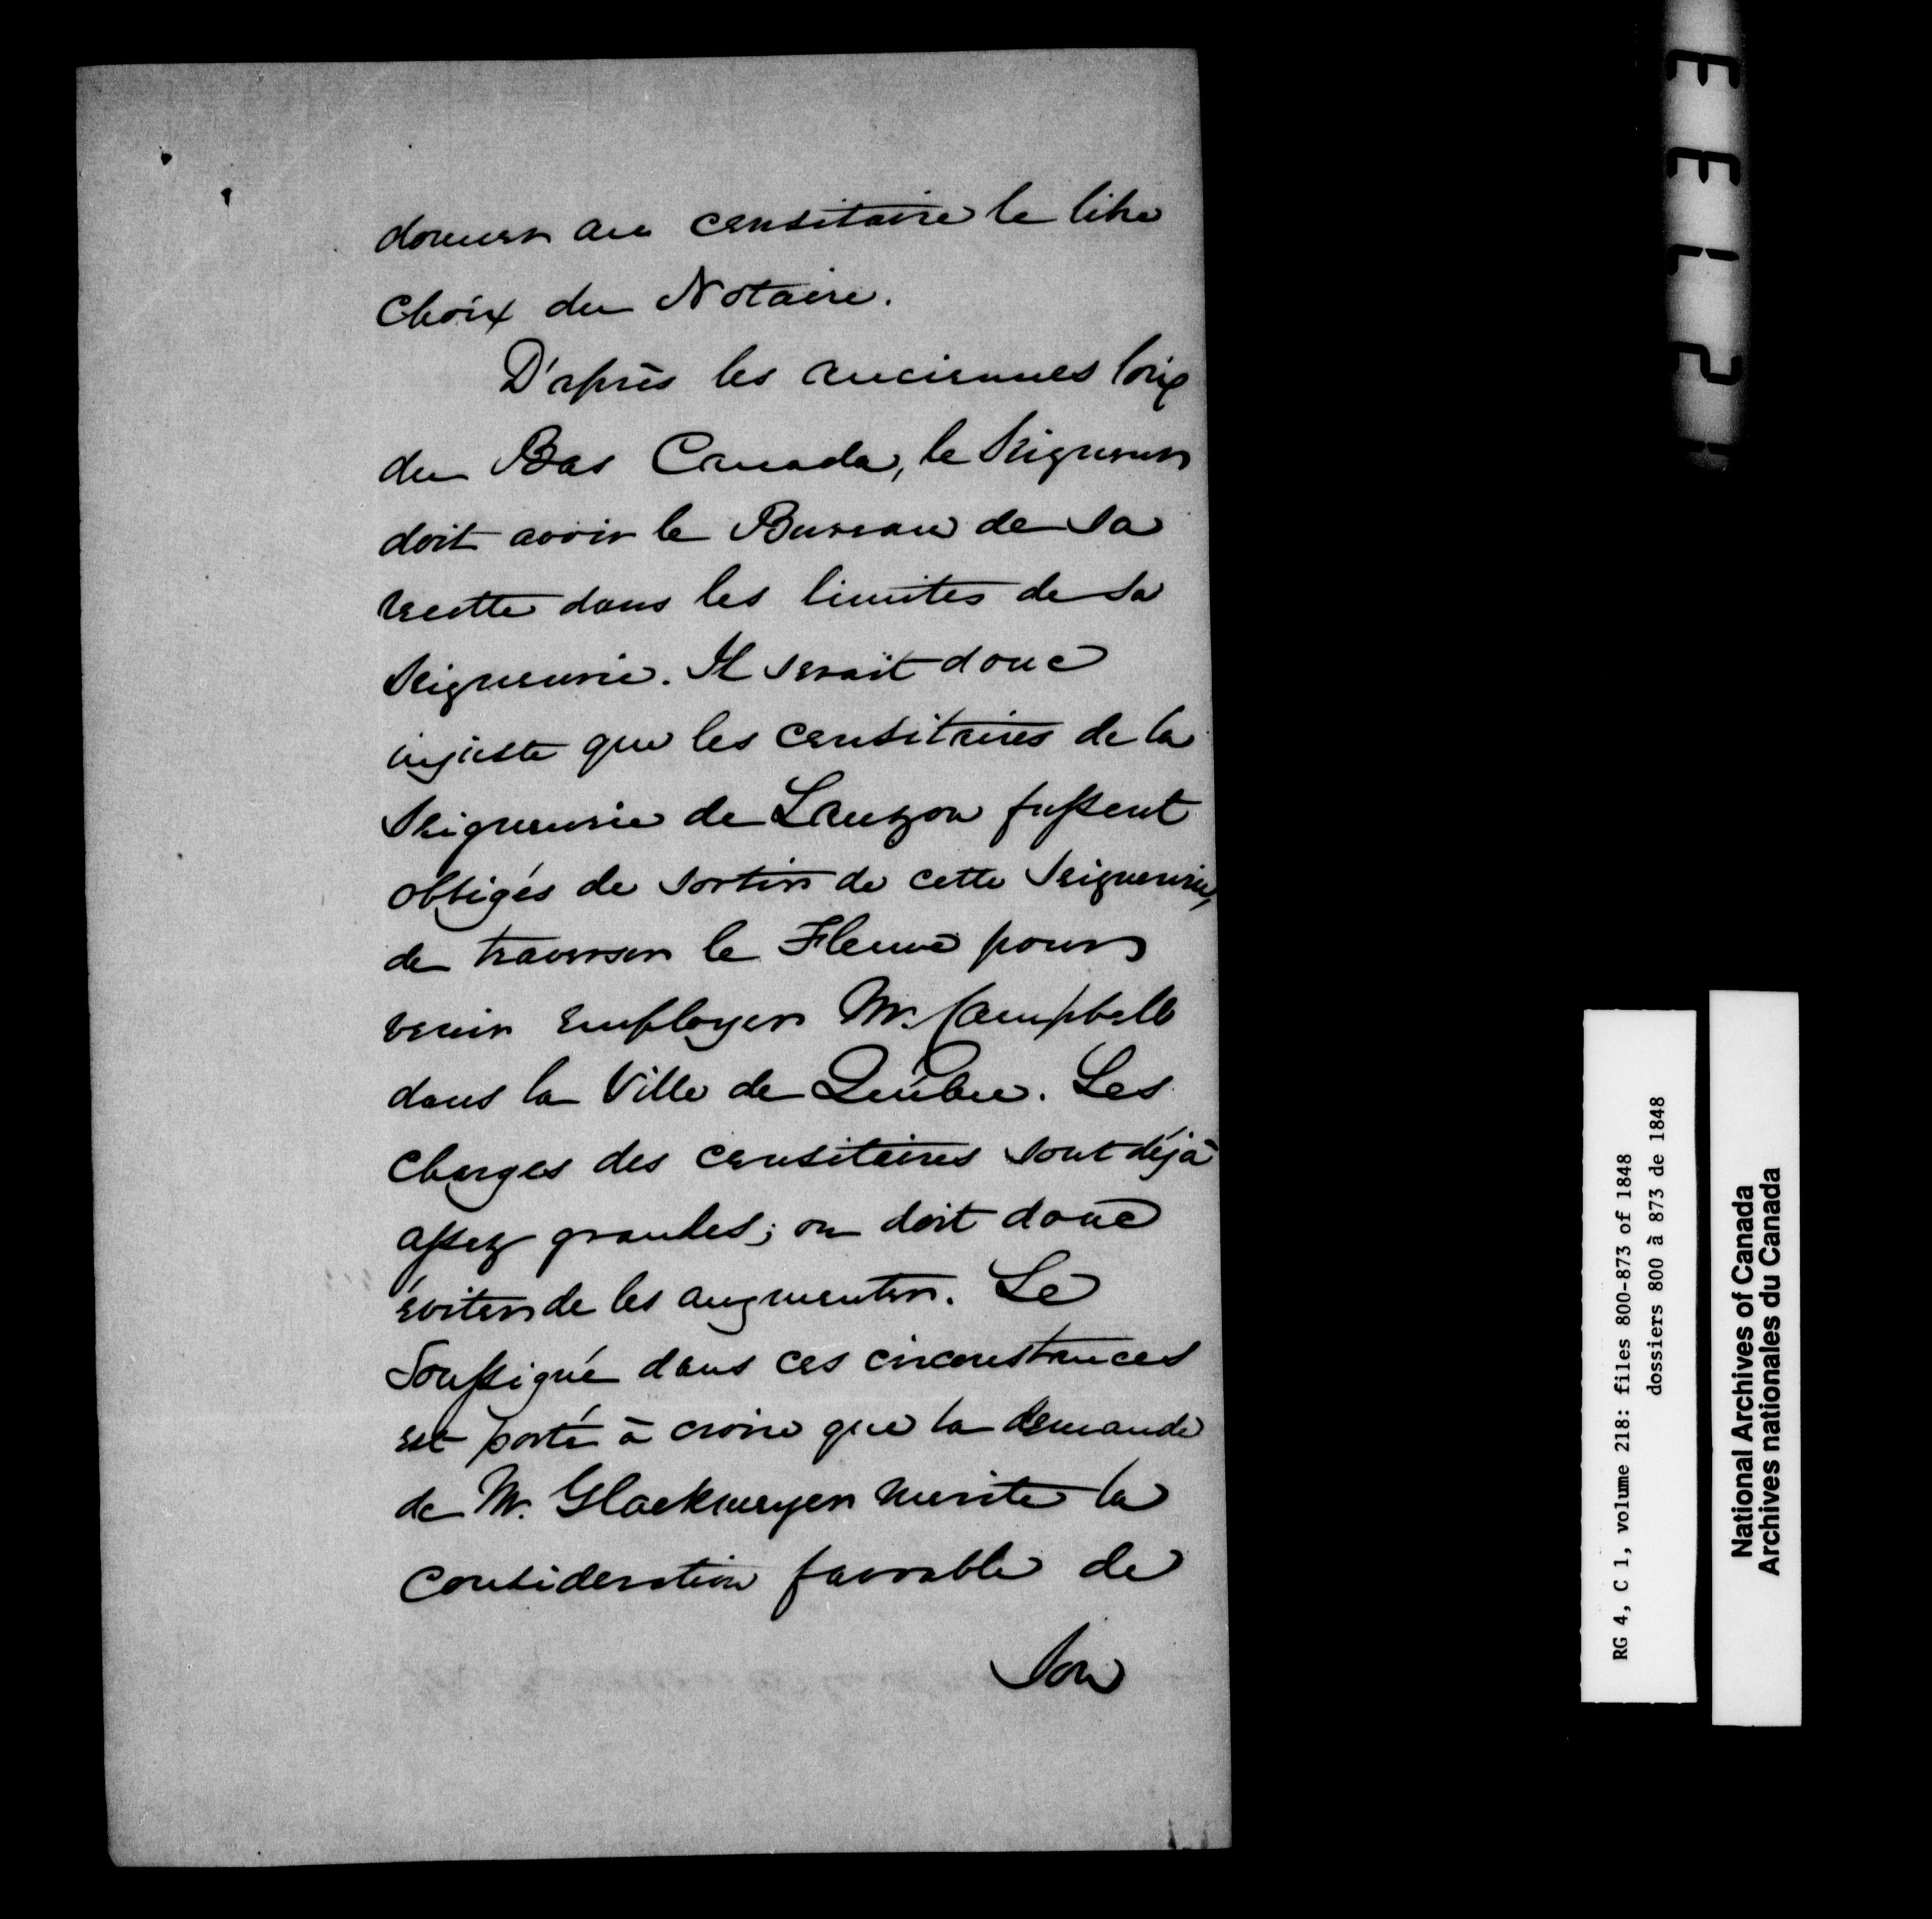 donner au censitaire le libre
choix du Notaire.
D'après les anciennes loix
du Bas Canada, le Seigneur
doit avoir le Bureau de sa
recette dans les limites de sa
Seigneurie. Il serait donc
injuste que les censitaires de la
Seigneurie de Lauzon fussent
obligés de sortir de cette Seigneurie,
de traverser le Fleuve pour
venir employer Mr. Campbell
dans la Ville de Québec. Les
charges des censitaires sont déjà
assez grandes; on doit donc
éviter de les augmenter. Le
Soussigné dans ces circonstances
est porté à croire que la demande
de Mr. Glackmeyer merite la
consideration favorable de
Son
RG 4, C 1, volume 218: files 800-873 of 1848
dossiers 800 à 873 de 1848
National Archives of Canada
Archives nationales du Canada